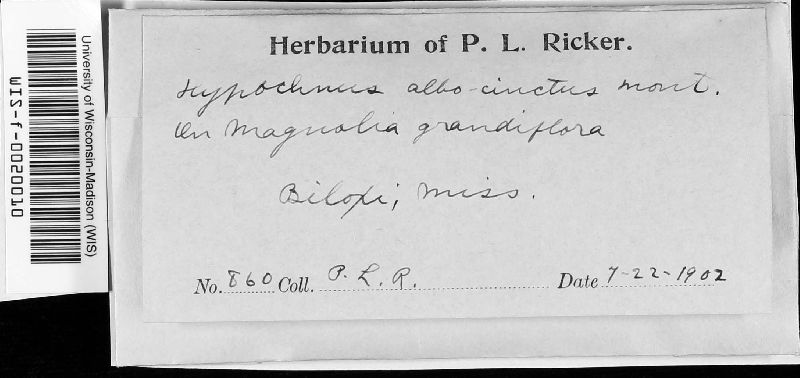 Herbarium of P. L. Ricker.
Hypochnus albo-cinctus Mont.
On Magnolia grandiflora
Biloxi, Miss.
No. 860 Coll. P. L. R. Date 7-22-1902
University of Wisconsin-Madison (WIS)
WIS-f-0020010